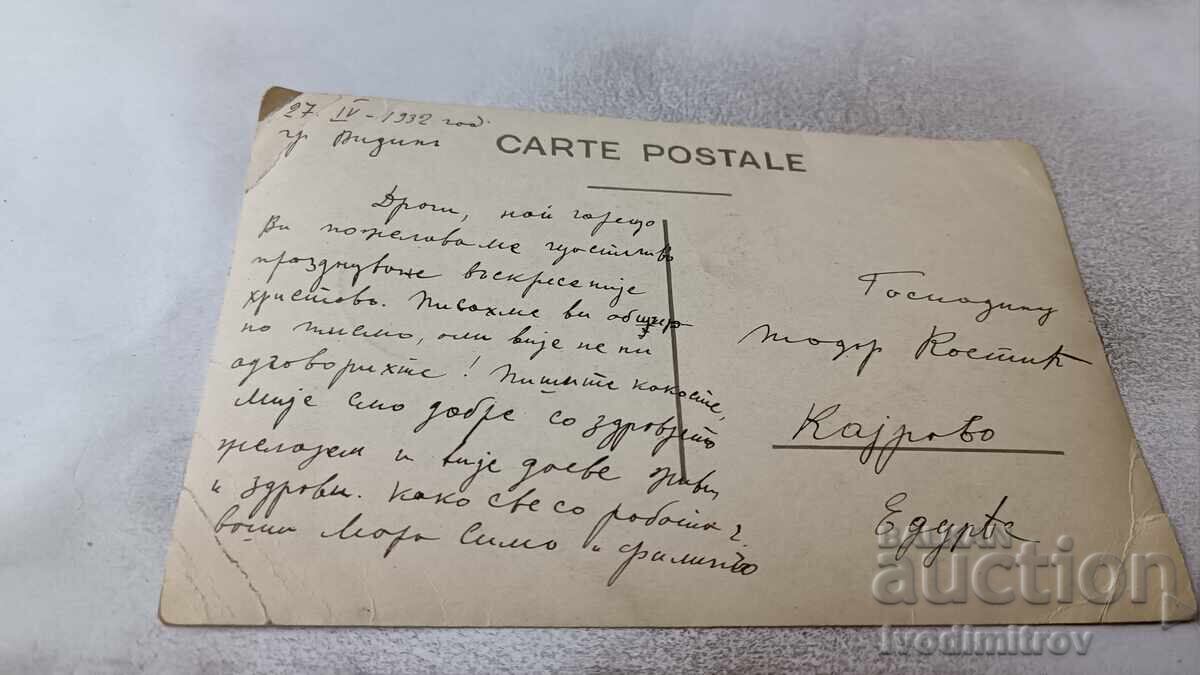 27. IV - 1932 год.
гр Видинъ
CARTE POSTALE
Драги, най горещо
Ви пожелаваме щастливо
празднуване въскресение
христово. Писахме ви обшир
но писмо, али вије не ни
одговорихте! Пишите како сте,
Мије смо добре со здравјето
желајем и вије да сте живи
и здрави. Како све со работа?
ваши Мара Симо и
Господину
Тодор Костић
Кајрово
BALKAN
auction
Ivodimitrov